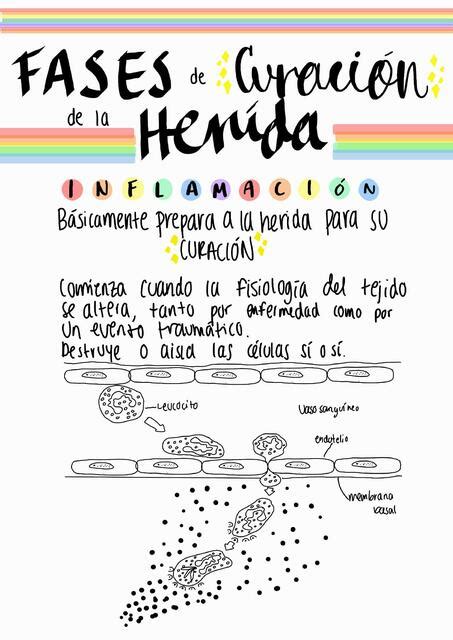 FASES de Curación
de la Herida
INFLAMACIÓN
Básicamente prepara a la herida para su
CURACIÓN
Comienza cuando la fisiología del tejido
se altera, tanto por enfermedad como por
un evento traumático.
Destruye o aisla las células sí o sí.
Leucocito
Vaso sanguíneo
endotelio
membrana
basal